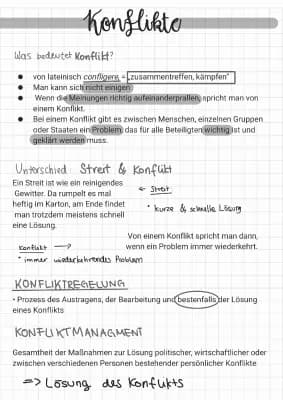 Konflikte
Was bedeutet Konflikt?
von lateinisch confligere = „zusammentreffen, kämpfen"
Man kann sich nicht einigen
Wenn die Meinungen richtig aufeinanderprallen, spricht man von
einem Konflikt.
Bei einem Konflikt gibt es zwischen Menschen, einzelnen Gruppen
oder Staaten ein Problem, das für alle Beteiligten wichtig ist und
geklärt werden muss.
Unterschied: Streit & Konflikt
Ein Streit ist wie ein reinigendes
Gewitter. Da rumpelt es mal
heftig im Karton, am Ende findet
man trotzdem meistens schnell
eine Lösung.
← Streit:
• kurze & schnelle Lösung
Von einem Konflikt spricht man dann,
wenn ein Problem immer wiederkehrt.
Konflikt →
• immer wiederkehrendes Problem
KONFLIKTREGELUNG
• Prozess des Austragens, der Bearbeitung und bestenfalls der Lösung
eines Konflikts
KONFLIKTMANAGMENT
Gesamtheit der Maßnahmen zur Lösung politischer, wirtschaftlicher oder
zwischen verschiedenen Personen bestehender persönlicher Konflikte
=> Lösung des Konflikts